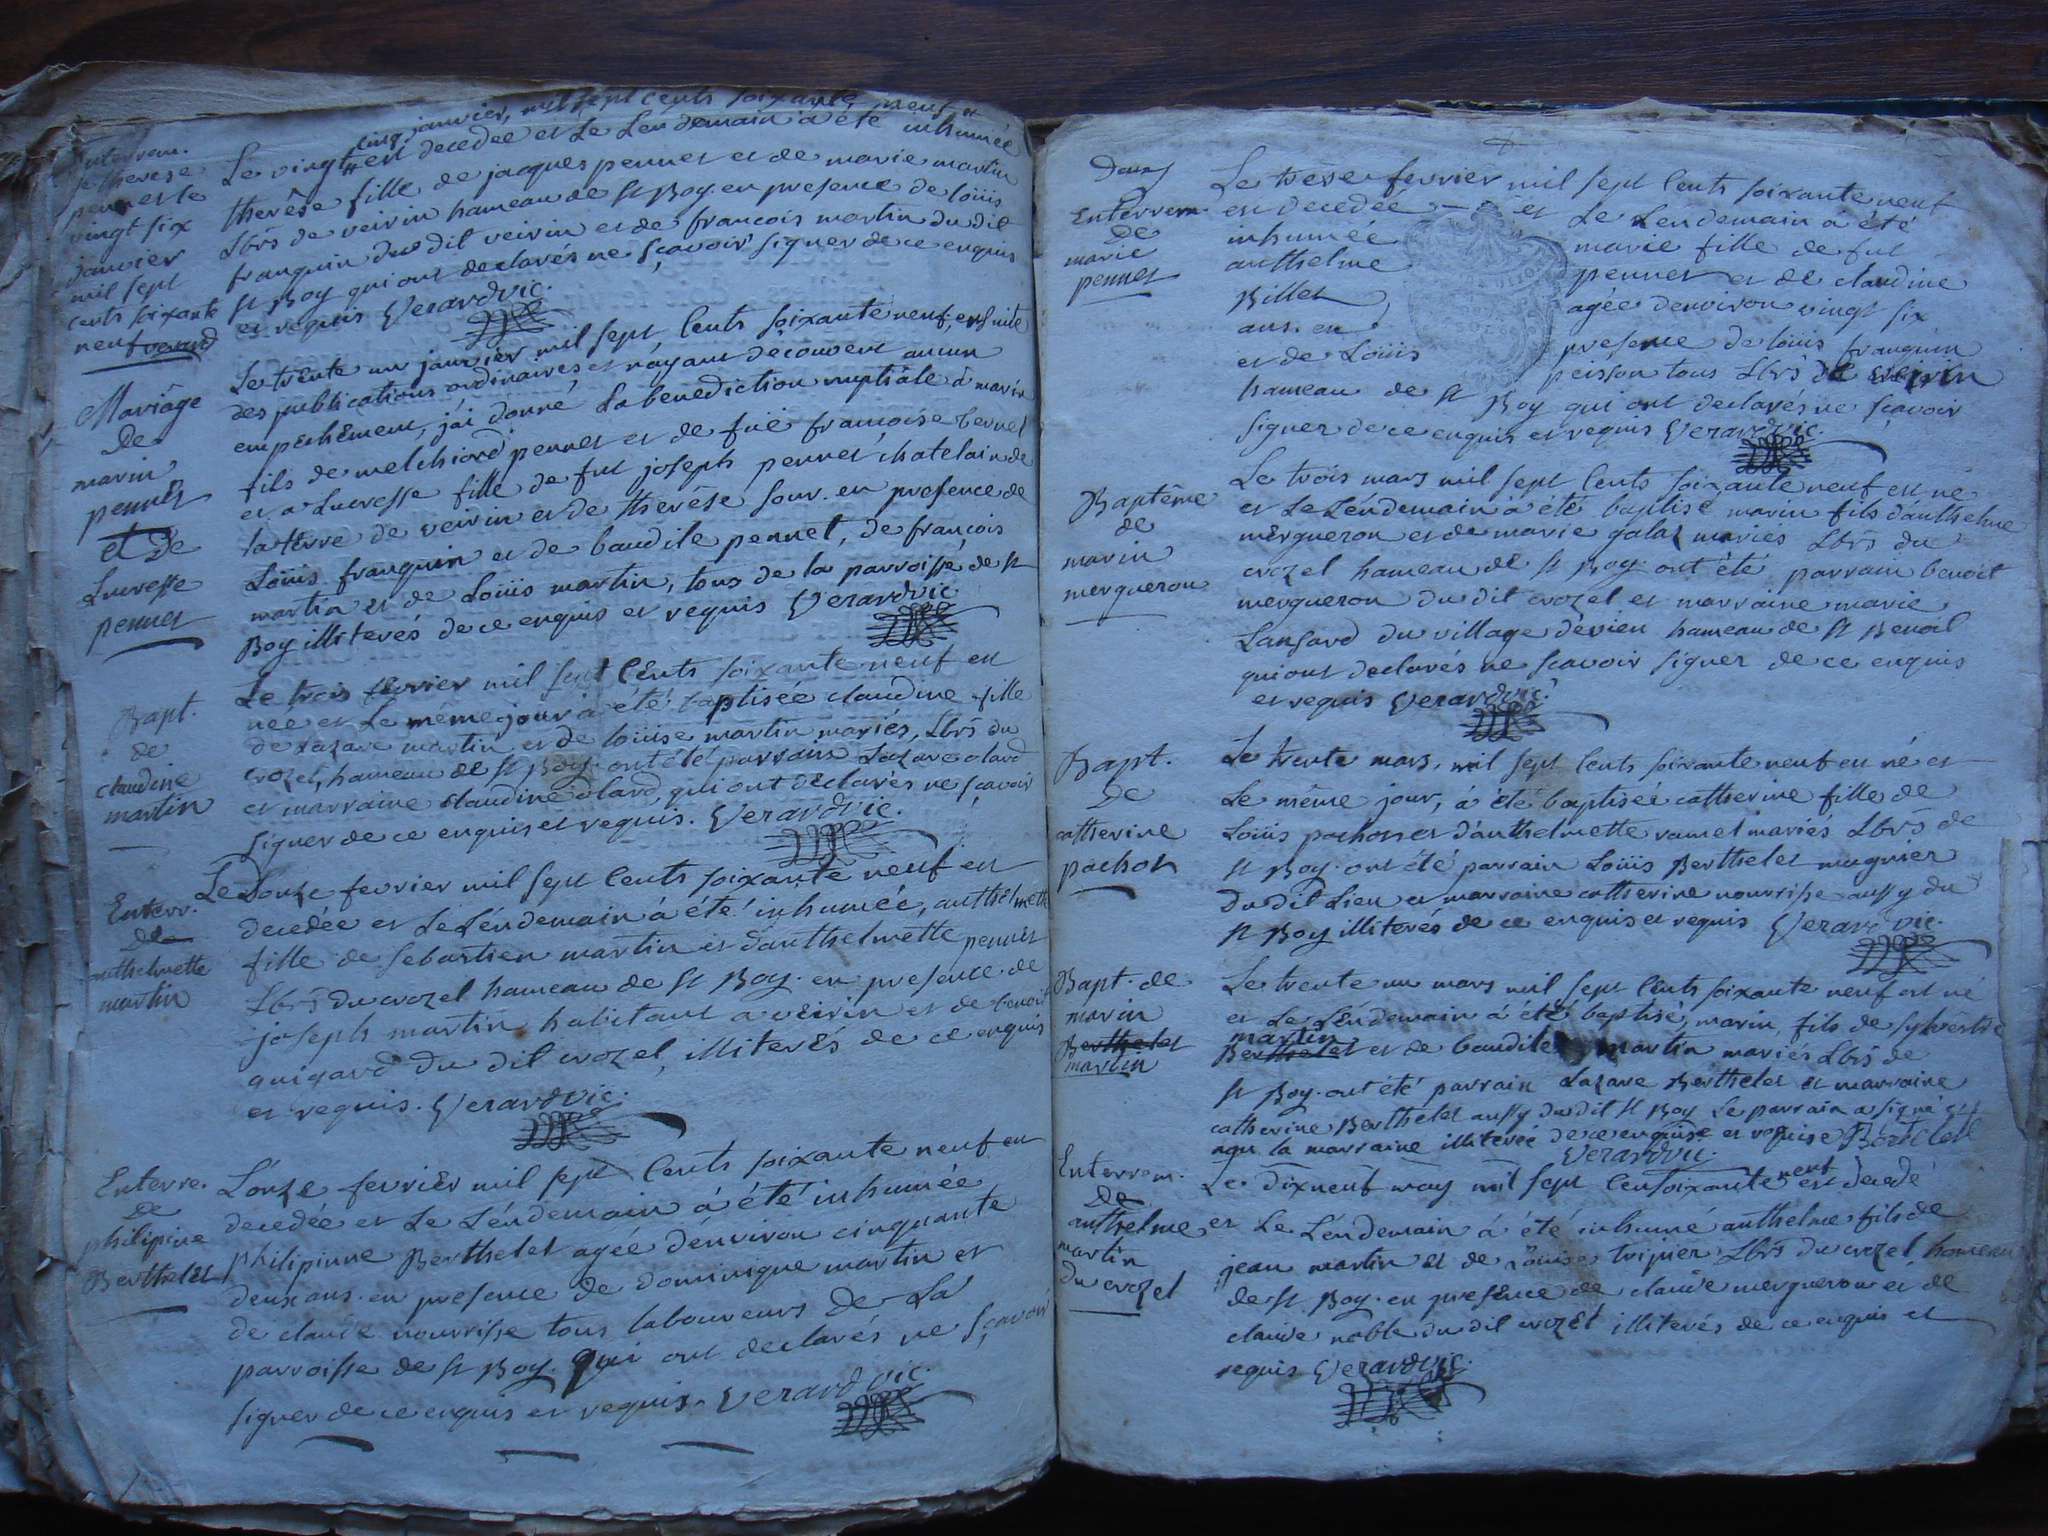 Enterrem.
de therese
pennet le
vingt six
janvier
mil sept
cents soixante
neuf verard
cinq janvier, mil sept cents soixante neuf
Le vingt est decedée et le léndemain à été inhumée
therêse fille de jacques pennet et de marie martin
Lbrs de veirin hameau de St Boy en presence de loüis
franquin du dit veirin et de francois martin du dit
St Boy qui ont declarés ne sçavoir signer de ce enquis
et requis Verard vic.
Mariâge
De
marin
pennet
et de
Lucresse
pennet
Le trente un janvier mil sept cents soixante neuf, ensuite
des publications ordinaires et n'ayant decouvert aucun
empechêment, j'ai donné la benediction nuptiâle à marin
fils de melchiord pennet et de füe francoise
et a Lucresse fille de fut joseph pennet châtelain de
la têrre de veirin et de therêse four. en presence de
Loüis franquin et de baudile pennet, de francois
martin et de Loüis martin, tous de la parroisse de St
Boy illiterés de ce enquis et requis Verard vic
Bapt.
de
claudine
martin
Le trois fevrier mil sept cents soixante neuf est
née et le même jour a été baptisée claudine fille
de Lazare martin et de loüise martin mariés, Lbrs du
crozel, hameau de St Boy. ont été parrain Lazare olard
et marraine claudine olard, qui ont déclarés ne sçavoir
signer de ce enquis et requis. Verard vic.
Enterr.
De
anthelmette
martin
Le Donze fevrier mil sept cents soixante neuf est
decedée et le léndemain à été inhumée, anthelmette
fille de sebastien martin et d'anthelmette pennet
Lbrs du crozel hameau de St Boy. en presence de
joseph martin habitant a veirin et de benoit
guigard du dit crozel, illiterés de ce enquis
et requis. Verard vic.
Enterre.
De
philipine
Berthelet
L'onze fevrier mil sept cents soixante neuf est
decedée et le léndemain à été inhumée
philipinne Berthelet agée d'environ cinquante
deux ans. en presence de dominique martin et
de claude nourrisse tous laboureurs de la
parroisse de St Boy. qui ont declarés ne sçavoir
signer de ce enquis et requis. Verard vic.
Douz
Enterrem.
De
marie
pennet
Le trese fevrier mil sept cents soixante neuf
est decedée et le lendemain à été
inhumée marie fille de fut
anthelme pennet et de claudine
Billet agée d'environ vingt six
ans. en presence de loüis franquin
et de Loüis peisson tous Lbrs de veirin
hameau de St Boy qui ont declarés ne sçavoir
signer de ce enquis et requis Verard vic.
Baptême
de
marin
mergueron
Le trois mars mil sept cents soixante neuf est né
et le léndemain à été baptisé marin fils d'anthelme
mergueron et de marie galaz mariés Lbrs du
crozel hameau de St Boy. ont été parrain benoit
mergueron du dit crozel et marraine marie
Lansard du village d'evieu hameau de St Benoit
qui ont declarés ne sçavoir signer de ce enquis
et requis Verard vic.
Bapt.
De
catherine
pochon
Le trente mars, mil sept cents soixante neuf est né et
le même jour, à été baptiseé catherine fille de
Loüis pochon et d'anthelmette ramel mariés Lbrs de
St Boy. ont été parrain Loüis Berthelet mugnier
du dit lieu et marraine catherine nourrisse aussy du
St Boy illiterés de ce enquis et requis Verard vic.
Bapt. de
marin
Berthelet
martin
Le trente un mars mil sept cents soixante neuf est né
et le léndemain à été baptisé, marin, fils de sylvestre
martin
Berthelet et de baudile martin mariés Lbrs de
St Boy. ont été parrain Lazare Berthelet et marraine
catherine Berthelet aussy du dit St Boy le parrain a signé et
non la marraine illiterée de ce enquise et requise Bertelet
Verard vic.
Enterrem.
De
anthelme
martin
du crozel
Le dixneuf may mil sept cent soixante neuf est decedé
et le léndemain à été inhumé anthelme fils de
jean martin et de Louise tripier Lbrs du crozel hameau
de St Boy. en presence de claude mergueron et de
claude noble du dit crozel illiterés de ce enquis et
requis Verard vic.